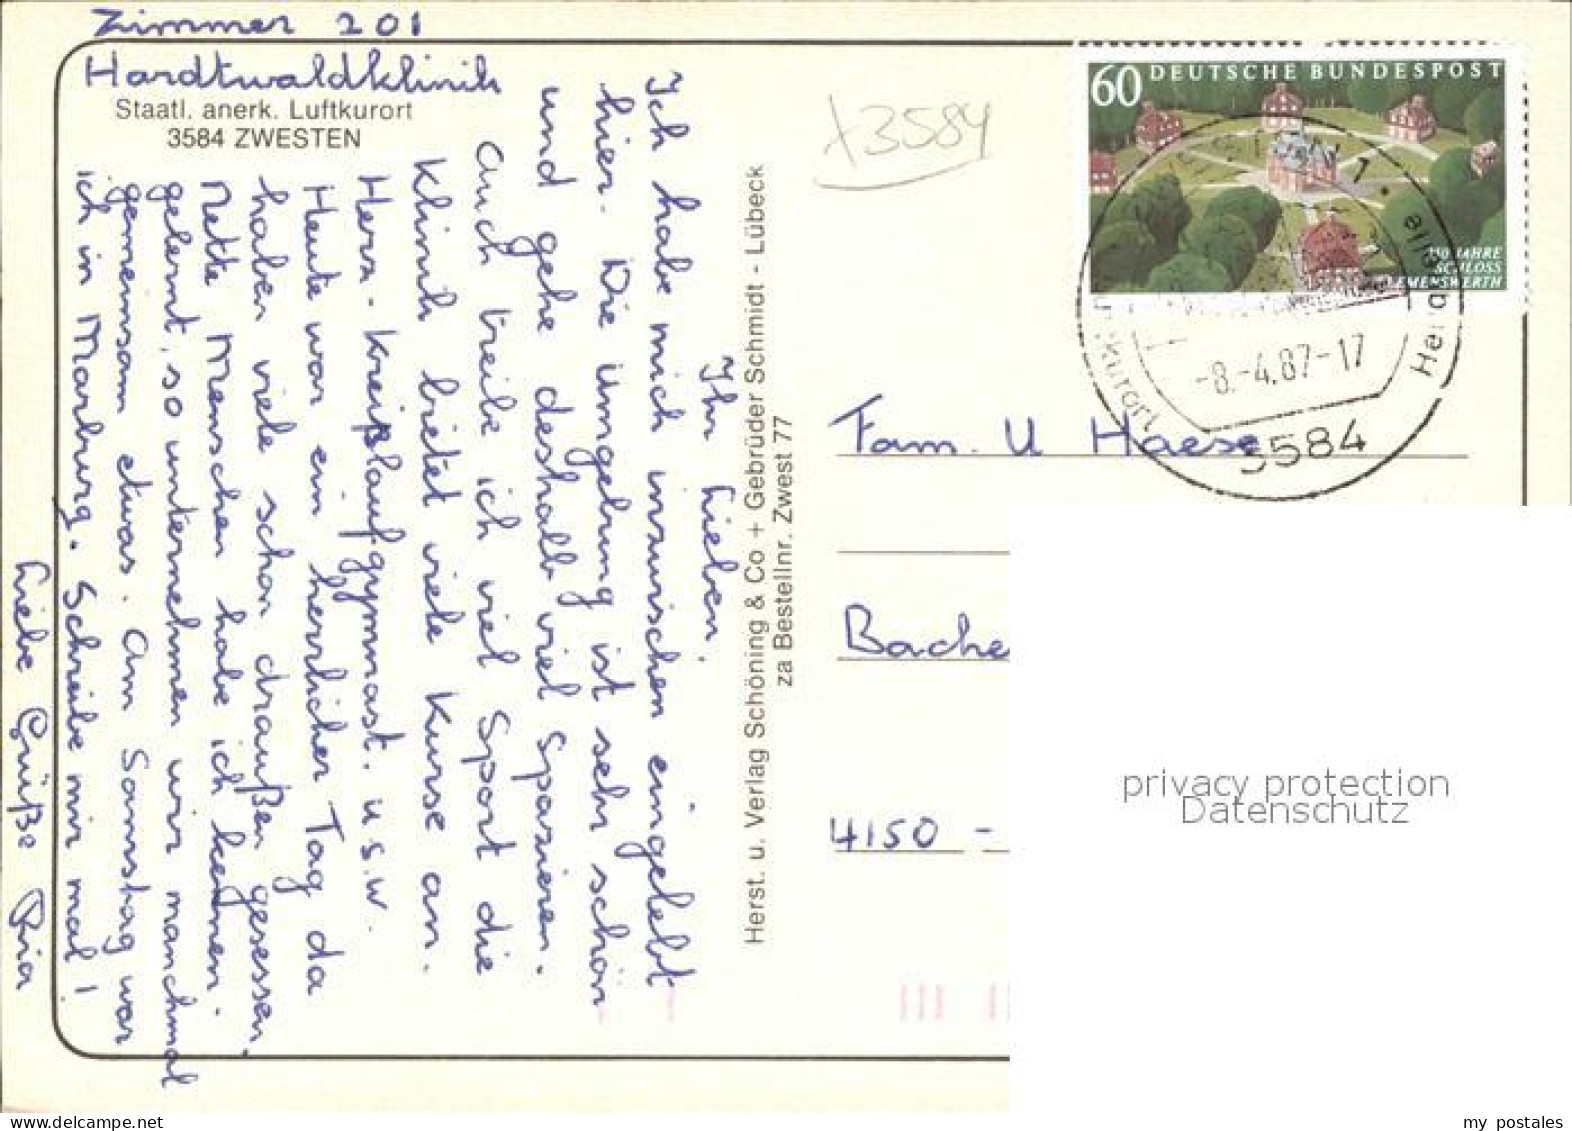 Zimmer 201
Hardtwaldklinik
Staatl. anerk. Luftkurort
3584 ZWESTEN
Ihr Lieben.
Ich habe mich inzwischen eingelebt
hier. Die Umgebung ist sehr schön
und gehe deshalb viel Spazieren.
Auch treibe ich viel Sport die
Klinik bietet viele Kurse an.
Herz-Kreißlaufgymnast. u.s.w.
Heute war ein herrlicher Tag da
haben viele schon draußen gesessen.
Nette Menschen habe ich kennen
gelernt, so unternehmen wir manchmal
gemeinsam etwas. Am Samstag war
ich in Marburg. Schreibe mir mal!
Liebe Grüße Ria
Herst. u. Verlag Schöning & Co + Gebrüder Schmidt - Lübeck
za Bestellnr. Zwest 77
X3584
60 DEUTSCHE BUNDESPOST
JAHRE
SCHLOSS
CLEMENSWERTH
-8.-4.87-17
3584
Fam. U Haese
Bache
4150 -
privacy protection
Datenschutz
my postales